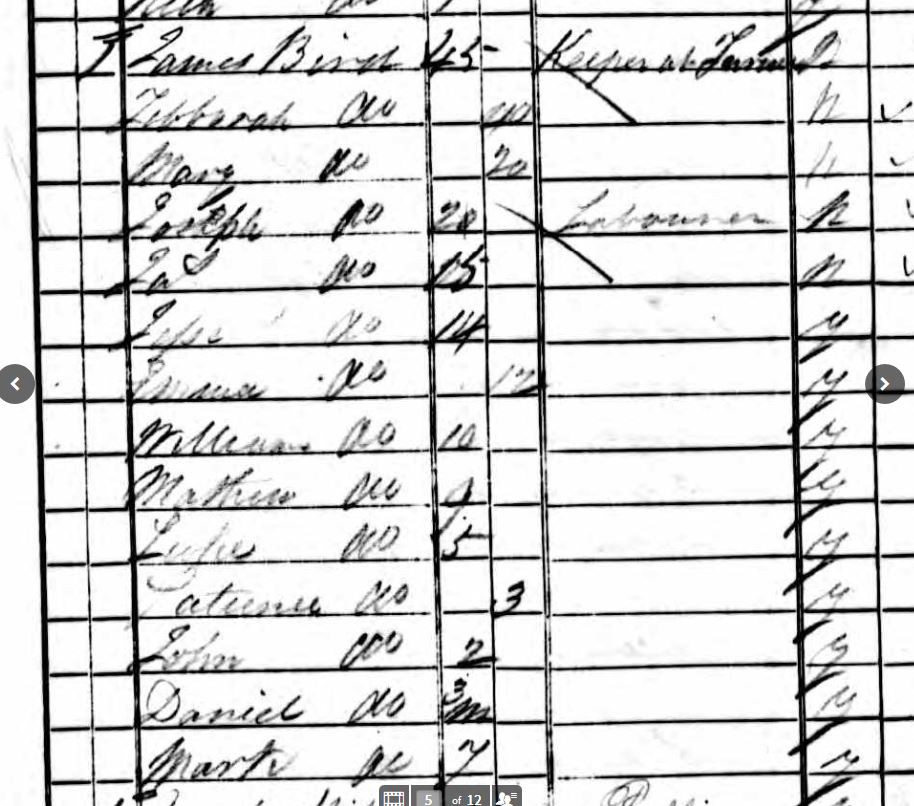 1 James Bird 45 Keeper at N
do 40 N
Mary do 20 N
Joseph do 20 Labourer N
Jas do 15 N
Jesse do 14 y
Emma do 12 y
William do 10 y
Mathew do 9 y
Luke do 5 y
Patience do 3 y
John do 2 y
Daniel do 3m y
Mark do 7 y
5 of 12